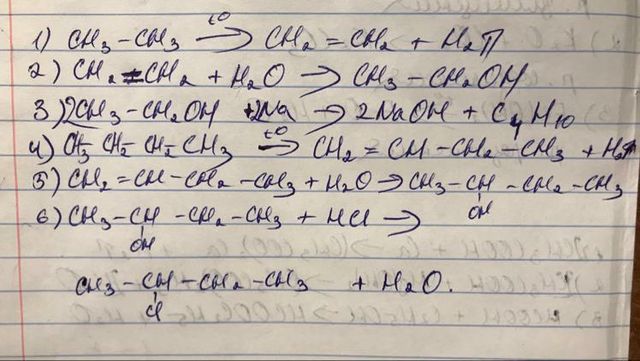 1) CH3-CH3 t0→ CH2=CH2 + H2↑
2) CH2=CH2 + H2O → CH3-CH2OH
3) 2CH3-CH2OH +2Na → 2NaOH + C4H10
4) CH3 CH2-CH2-CH3 t0→ CH2=CH-CH2-CH3 + H2↑
5) CH2=CH-CH2-CH3 + H2O → CH3-CH-CH2-CH3
OH
6) CH3-CH-CH2-CH3 + HCl →
OH
CH3-CH-CH2-CH3 + H2O.
Cl